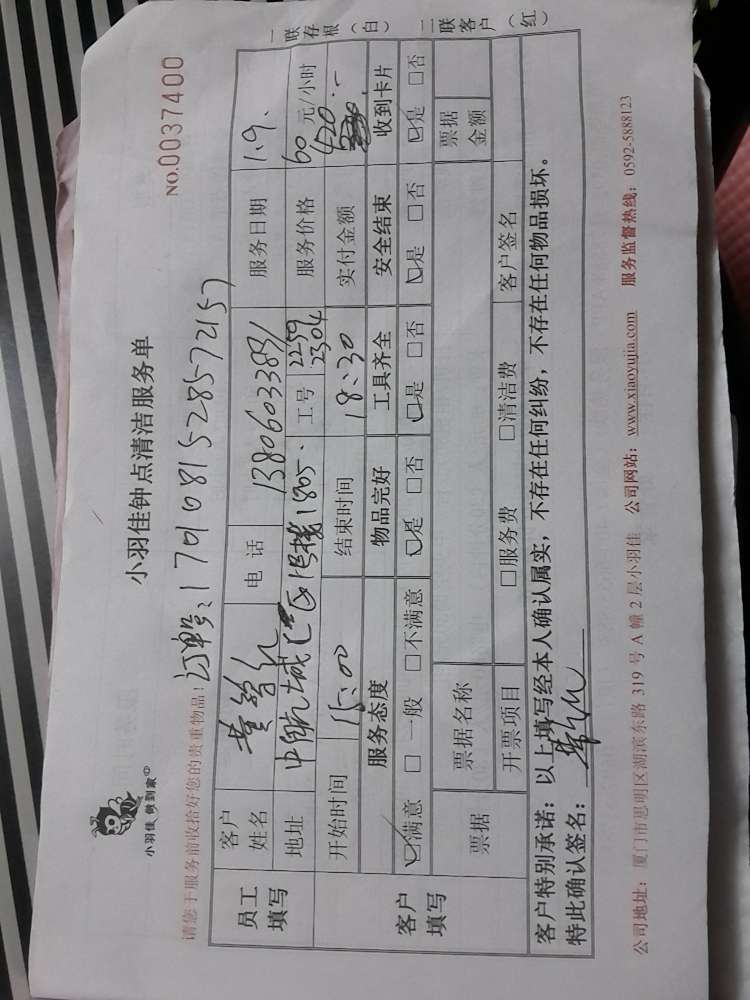 小羽佳 做到家
小羽佳钟点清洁服务单
NO.0037400
请您于服务前收拾好您的贵重物品!
订单号:170108152857215７
员工填写
客户姓名
电话
13806033891
服务日期
1.9.
地址
中航城C区1号楼1805.
工号
2259
2304
服务价格
60元/小时
客户填写
开始时间
15:00
结束时间
18:30
实付金额
420.-
服务态度
物品完好
工具齐全
安全结束
收到卡片
☑满意 □一般 □不满意
☑是 □否
☑是 □否
☑是 □否
☑是 □否
票据
票据名称
票据金额
开票项目
□服务费 □清洁费
客户签名
客户特别承诺:以上填写经本人确认属实,不存在任何纠纷,不存在任何物品损坏。
特此确认签名:
公司地址:厦门市思明区湖滨东路 319 号 A 幢 2 层小羽佳 公司网站:www.xiaoyujia.com 服务监督热线:0592-5888123
一联存根(白) 二联客户(红)